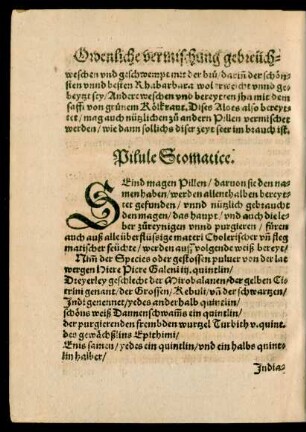 Ordenliche vermischung gebreüch-
weschen vnd geschwempt mit der brü / dariñ der schöns-
ten vnnd besten Rhabarbara wol erweicht vnnd ge-
beytzt sey / Andere weschen vnd bereyten jha mit dem
safft von grünem Kölkraut. Dises Aloes also bereyt-
tet / mag auch nützlichen zů andern Pillen vermischet
werden / wie dann sollichs diser zeyt seer im brauch ist.
Pilule Stomatice.
SEind magen Pillen / daruon sie den na-
men haben / werden allenthalben bereye-
tet gefunden / vnnd nützlich gebraucht
den magen / das haupt / vnd auch die le-
ber zůreynigen vnnd purgieren / füren
auch auß alle überflüssige materi Cholerischer vñ fleg
matischer feüchte / werden auff volgende weiß bereyt /
Nim̃ der Species oder gestossen puluer von der lat
wergen Hiere Picre Galeni iij. quintlin /
Dreyerley geschlecht der Mirobalanen / der gelben Ci-
trini genant / der Grossen / Kebuli / vñ der schwartzen /
Indi genennet / yedes ander halb quintlin /
schöns weiß Dannenschwam̃s ein quintlin /
der purgierenden frembden wurtzel Turbith v. quint.
des gewächßlins Epithimi /
Enis samen / yedes ein quintlin / vnd ein halbs quint-
lin halber /
India-